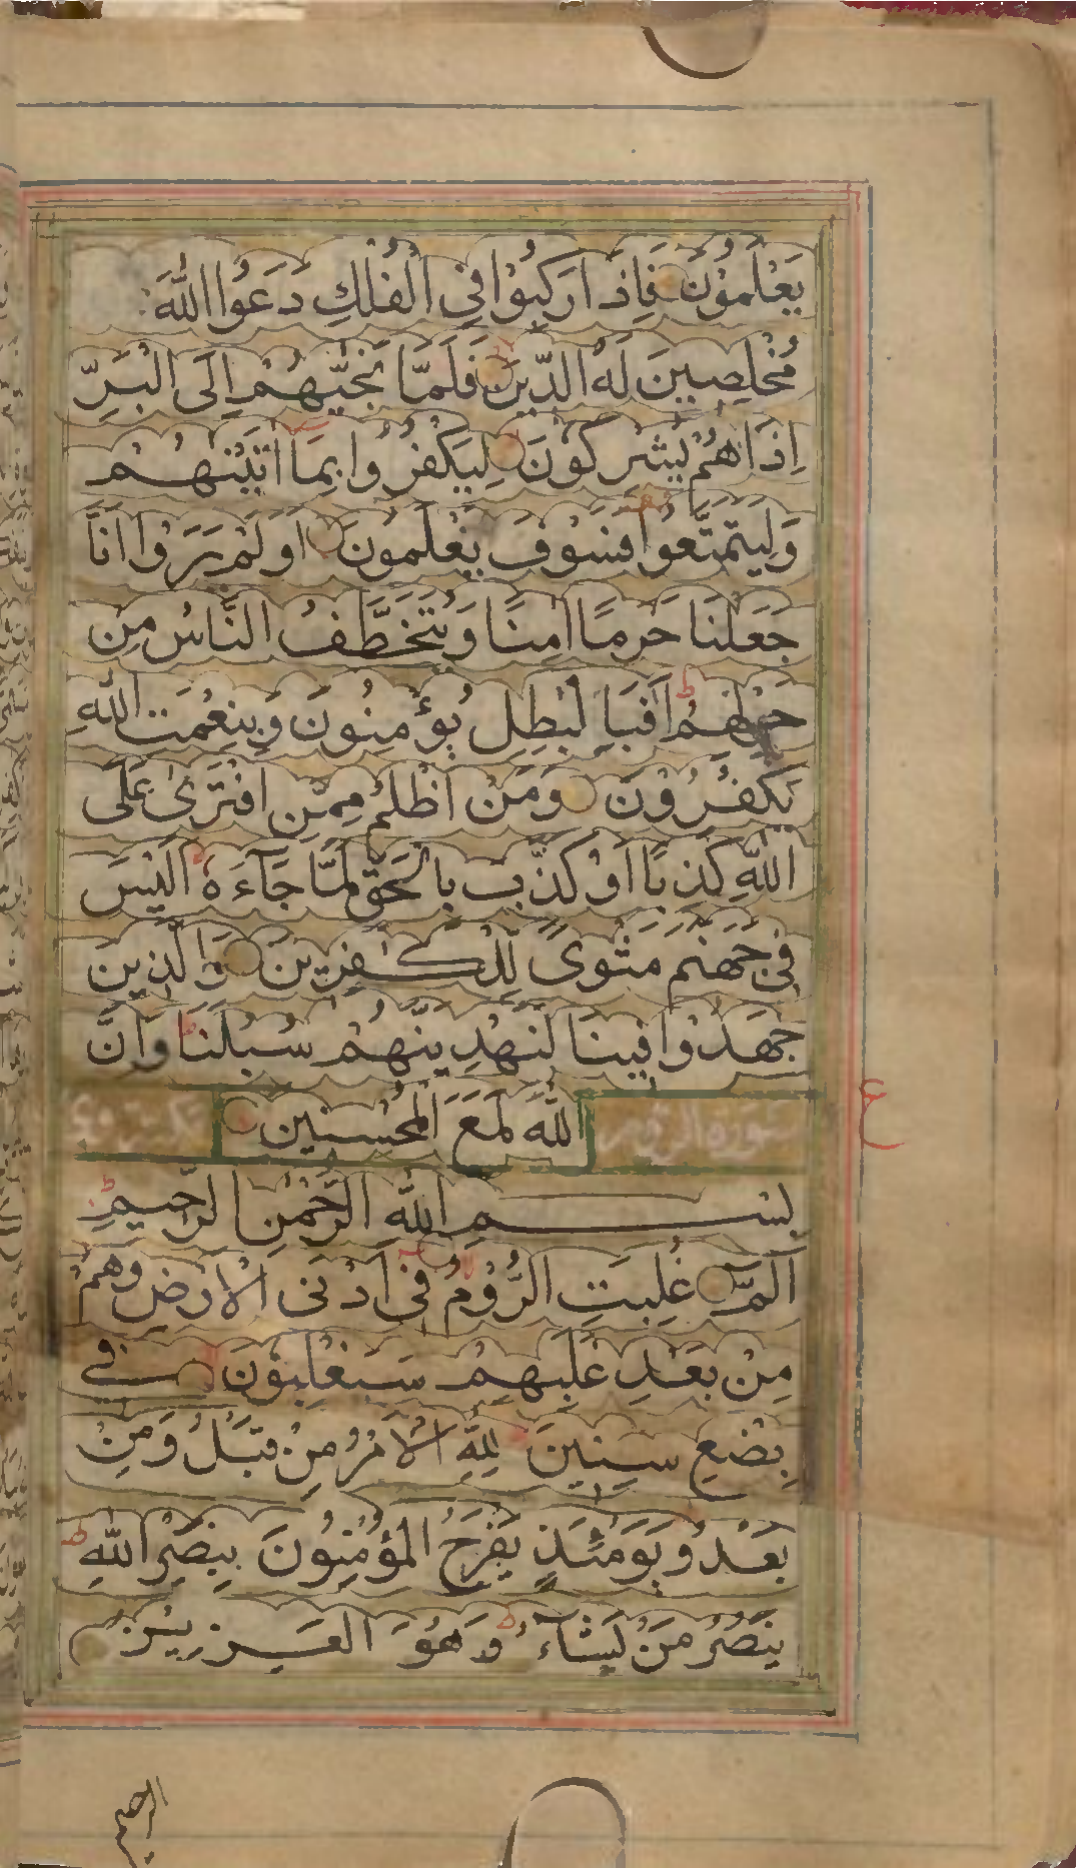 يَعْلَمُوْنَ فَاِذَا رَكِبُوْا فِى الْفُلْكِ دَعَوُا اللّٰهَ
مُخْلِصِيْنَ لَهُ الدِّيْنَ فَلَمَّا نَجّٰىهُمْ اِلَى الْبَرِّ
اِذَا هُمْ يُشْرِكُوْنَ لِيَكْفُرُوْا بِمَا اٰتَيْنٰهُمْ
وَلِيَتَمَتَّعُوْا فَسَوْفَ يَعْلَمُوْنَ اَوَلَمْ يَرَوْا اَنَّا
جَعَلْنَا حَرَمًا اٰمِنًا وَيُتَخَطَّفُ النَّاسُ مِنْ
حَوْلِهِمْ اَفَبِالْبٰطِلِ يُؤْمِنُوْنَ وَبِنِعْمَتِ اللّٰهِ
يَكْفُرُوْنَ وَمَنْ اَظْلَمُ مِمَّنِ افْتَرٰى عَلَى
اللّٰهِ كَذِبًا اَوْ كَذَّبَ بِالْحَقِّ لَمَّا جَآءَهٗ اَلَيْسَ
فِىْ جَهَنَّمَ مَثْوًى لِّلْكٰفِرِيْنَ وَالَّذِيْنَ
جٰهَدُوْا فِيْنَا لَنَهْدِيَنَّهُمْ سُبُلَنَا وَاِنَّ
سورة الروم اللّٰهَ لَمَعَ الْمُحْسِنِيْنَ
ع
بِسْمِ اللّٰهِ الرَّحْمٰنِ الرَّحِيْمِ
الٓمّٓ غُلِبَتِ الرُّوْمُ فِىْ اَدْنَى الْاَرْضِ وَهُمْ
مِنْ بَعْدِ غَلَبِهِمْ سَيَغْلِبُوْنَ فِىْ
بِضْعِ سِنِيْنَ لِلّٰهِ الْاَمْرُ مِنْ قَبْلُ وَمِنْ
بَعْدُ وَيَوْمَئِذٍ يَفْرَحُ الْمُؤْمِنُوْنَ بِنَصْرِ اللّٰهِ
يَنْصُرُ مَنْ يَشَآءُ وَهُوَ الْعَزِيْزُ
الرحيم